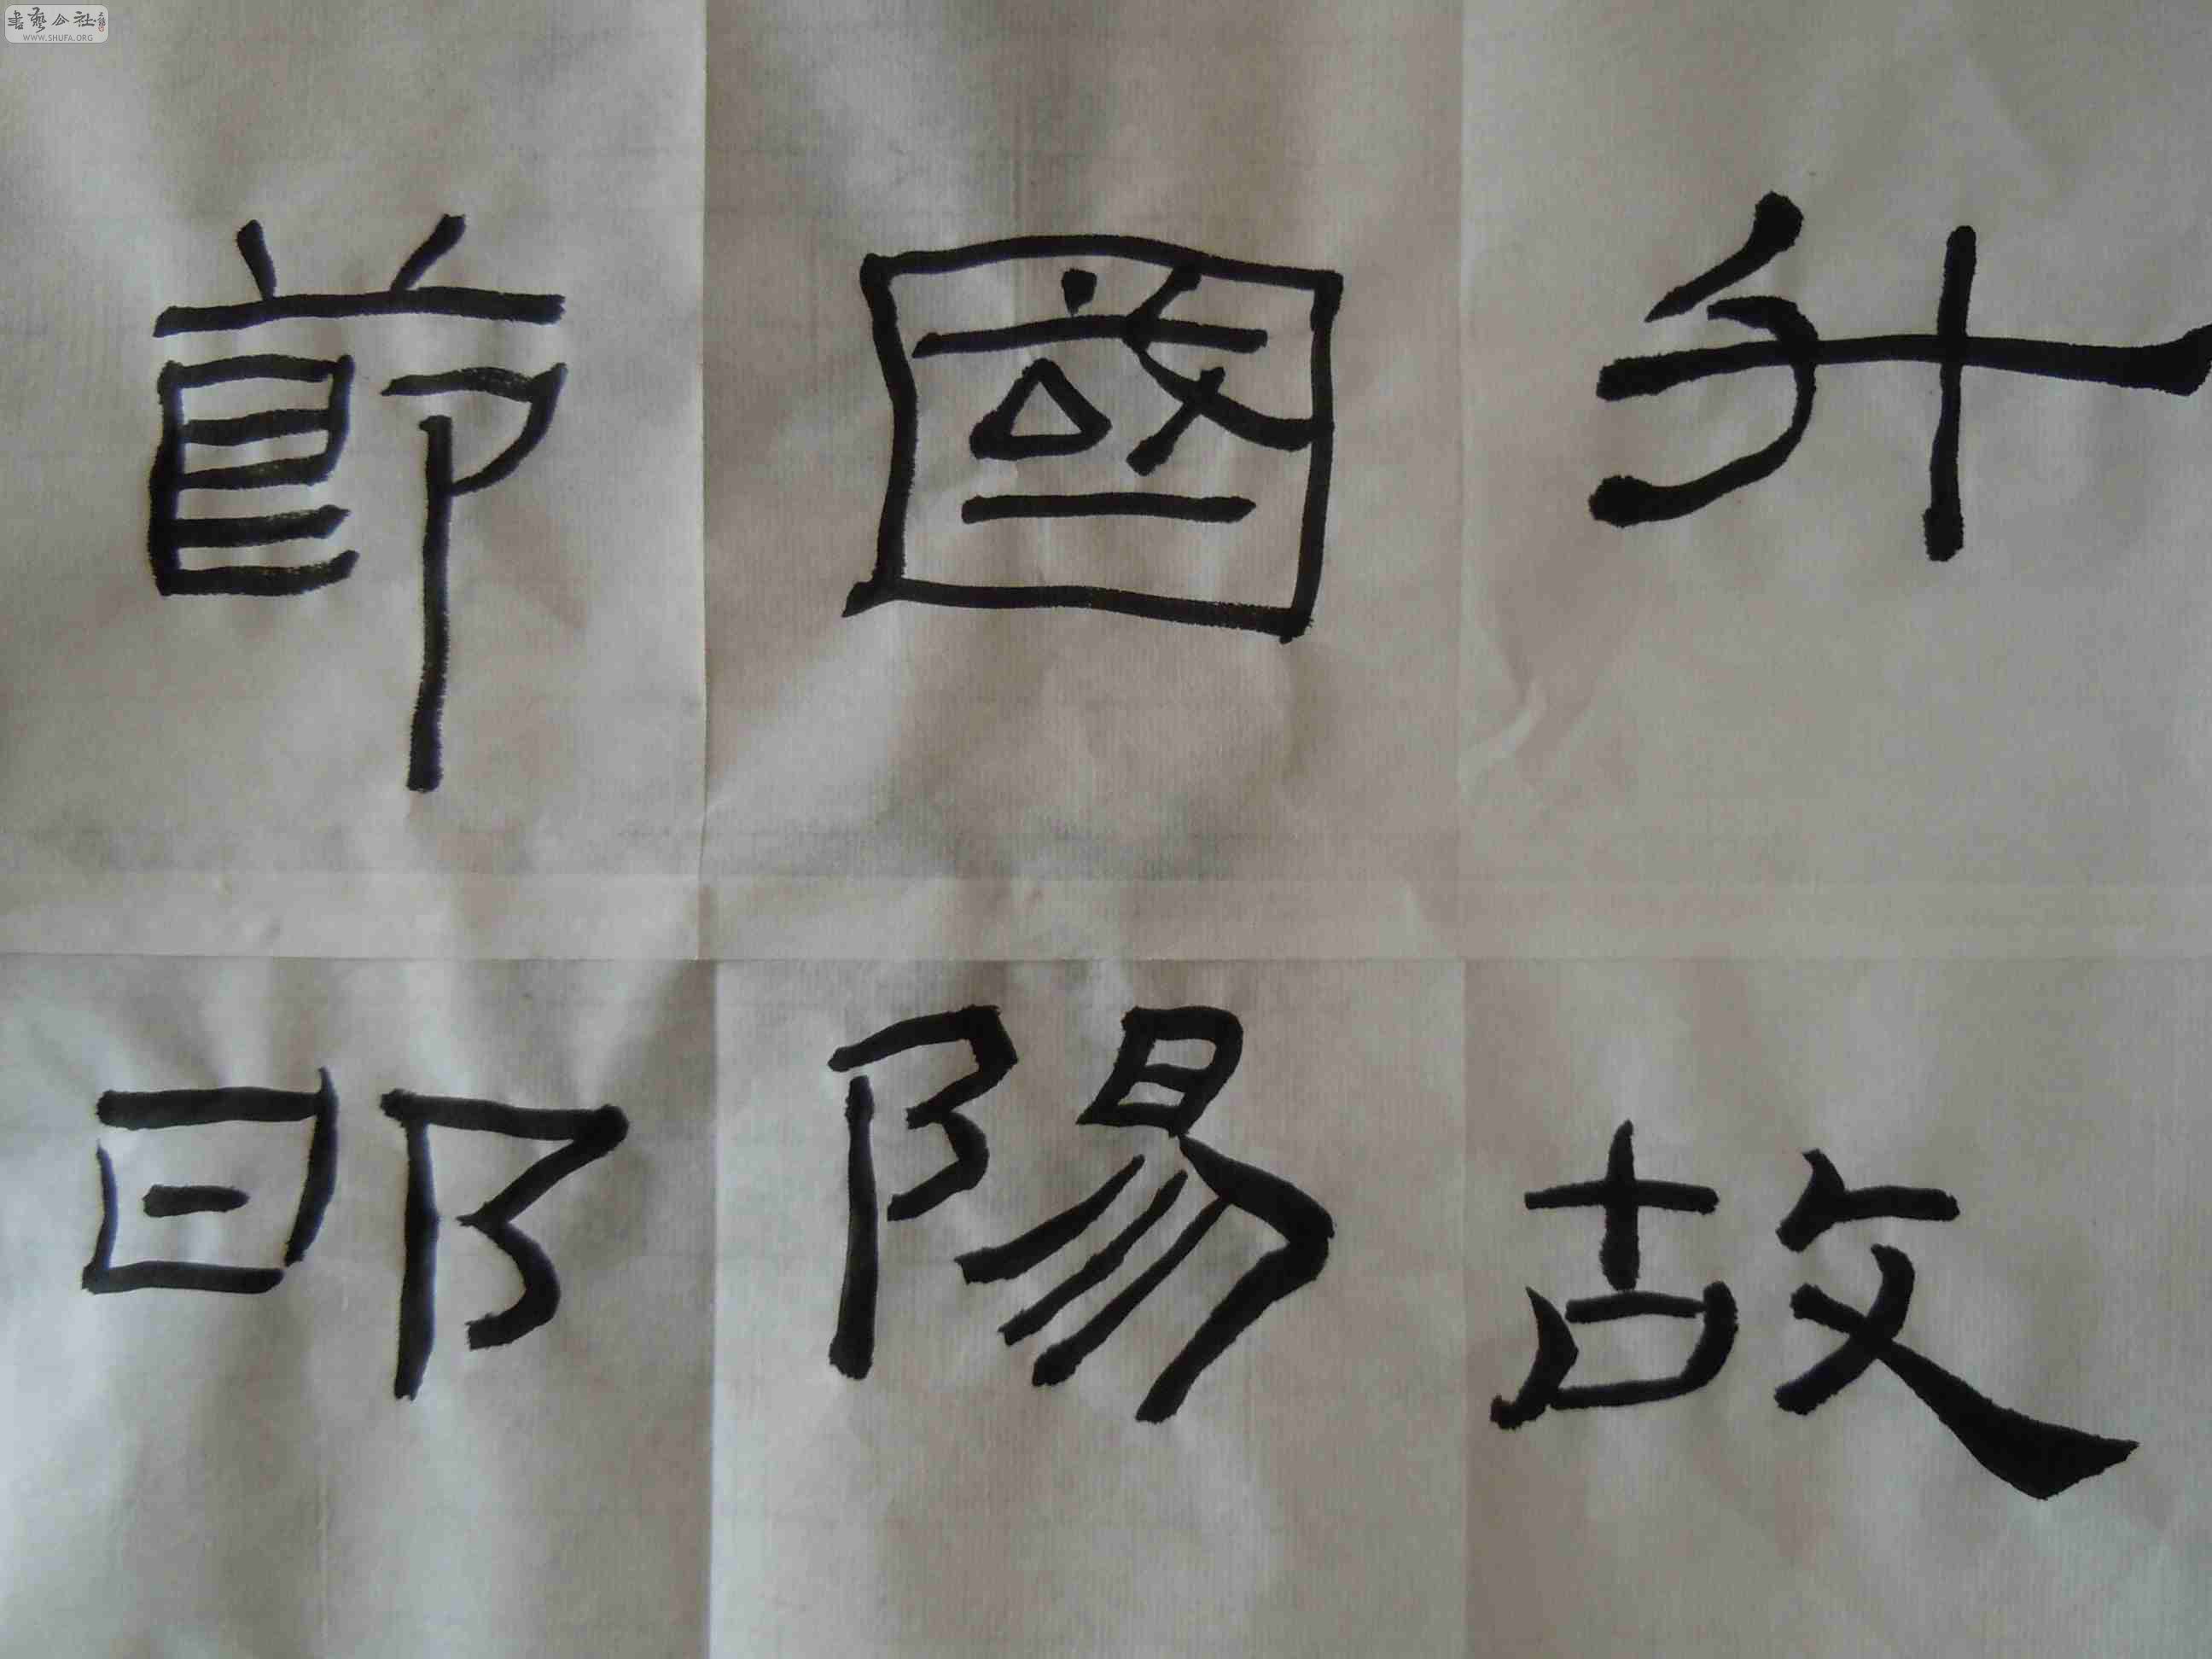 書藝公社
WWW.SHUFA.ORG
節 國 升
陽 故